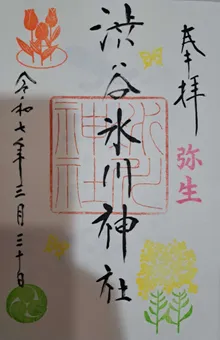 奉拝
弥生
渋谷氷川神社
令和七年三月三十日